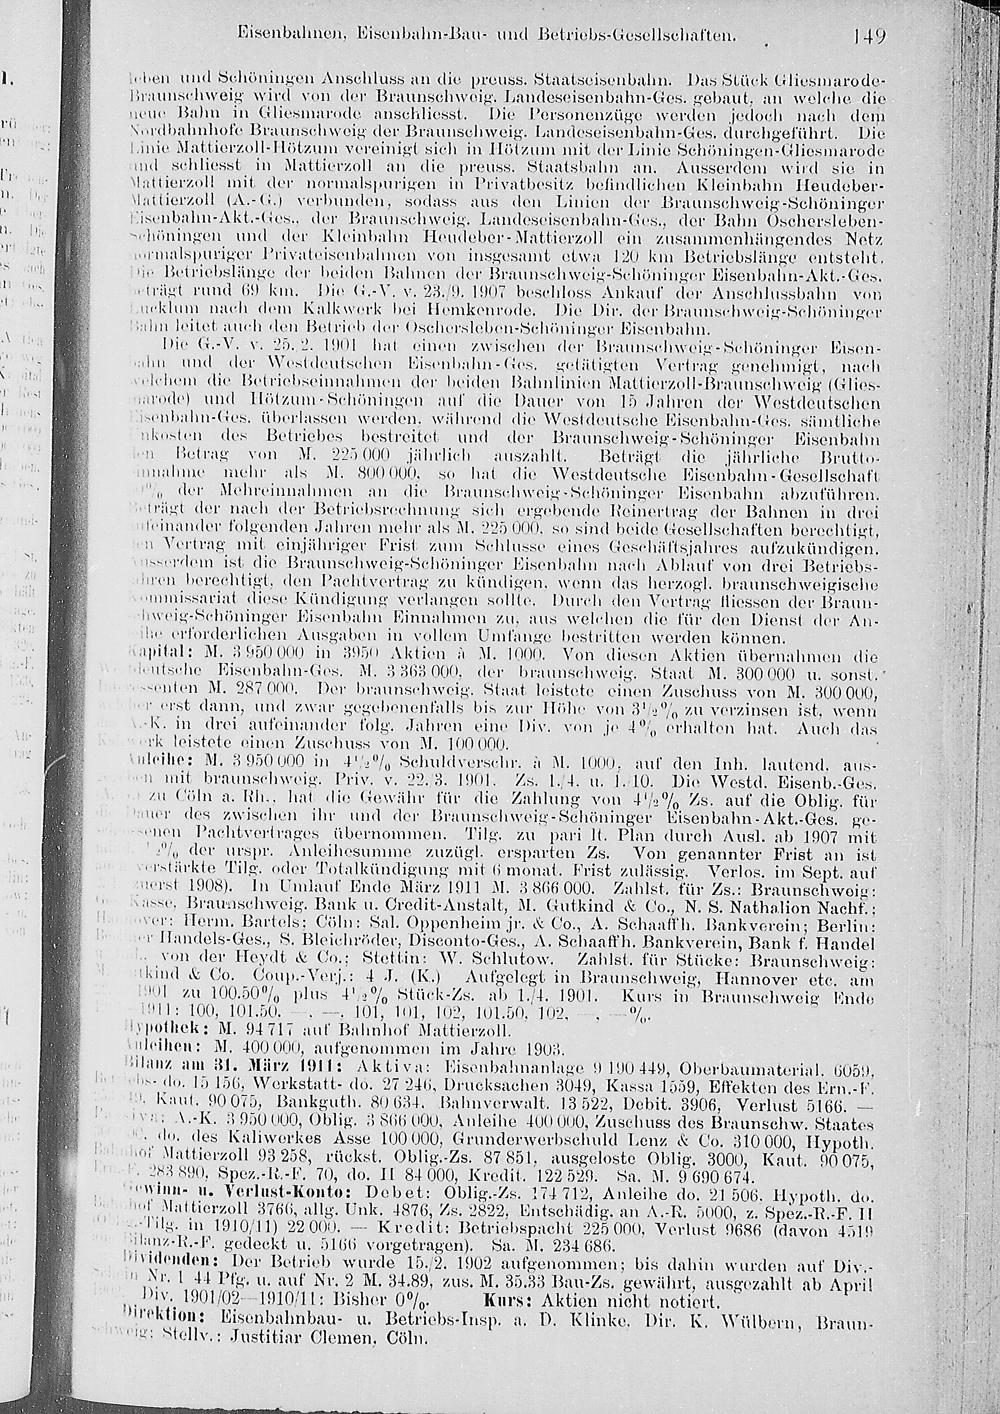 Eisenbahnen, Eisenbahn-Bau- und Betriebs-Gesellschaften. 149
leben und Schöningen Anschluss an die preuss. Staatseisenbahn. Das Stück Gliesmarode-
Braunschweig wird von der Braunschweig. Landeseisenbahn-Ges. gebaut, an welche die
neue Bahn in Gliesmarode anschliesst. Die Personenzüge werden jedoch nach dem
Nordbahnhofe Braunschweig der Braunschweig. Landeseisenbahn-Ges. durchgeführt. Die
Linie Mattierzoll-Hötzum vereinigt sich in Hötzum mit der Linie Schöningen-Gliesmarode
und schliesst in Mattierzoll an die preuss. Staatsbahn an. Ausserdem wird sie in
Mattierzoll mit der normalspurigen in Privatbesitz befindlichen Kleinbahn Heudeber-
Mattierzoll (A.-G.) verbunden, sodass aus den Linien der Braunschweig-Schöninger
Eisenbahn-Akt.-Ges., der Braunschweig. Landeseisenbahn-Ges., der Bahn Oschersleben-
Schöningen und der Kleinbahn Heudeber-Mattierzoll ein zusammenhängendes Netz
normalspuriger Privateisenbahnen von insgesamt etwa 120 km Betriebslänge entsteht.
Die Betriebslänge der beiden Bahnen der Braunschweig-Schöninger Eisenbahn-Akt.-Ges.
beträgt rund 69 km. Die G.-V. v. 23./9. 1907 beschloss Ankauf der Anschlussbahn von
Lucklum nach dem Kalkwerk bei Hemkenrode. Die Dir. der Braunschweig-Schöninger
Bahn leitet auch den Betrieb der Oschersleben-Schöninger Eisenbahn.
Die G.-V. v. 25. 2. 1901 hat einen zwischen der Braunschweig-Schöninger Eisen-
bahn und der Westdeutschen Eisenbahn-Ges. getätigten Vertrag genehmigt, nach
welchem die Betriebseinnahmen der beiden Bahnlinien Mattierzoll-Braunschweig (Glies-
marode) und Hötzum-Schöningen auf die Dauer von 15 Jahren der Westdeutschen
Eisenbahn-Ges. überlassen werden, während die Westdeutsche Eisenbahn-Ges. sämtliche
Unkosten des Betriebes bestreitet und der Braunschweig-Schöninger Eisenbahn
den Betrag von M. 225 000 jährlich auszahlt. Beträgt die jährliche Brutto-
einnahme mehr als M. 800 000, so hat die Westdeutsche Eisenbahn-Gesellschaft
% der Mehreinnahmen an die Braunschweig-Schöninger Eisenbahn abzuführen.
Beträgt der nach der Betriebsrechnung sich ergebende Reinertrag der Bahnen in drei
aufeinander folgenden Jahren mehr als M. 225 000, so sind beide Gesellschaften berechtigt,
den Vertrag mit einjähriger Frist zum Schlusse eines Geschäftsjahres aufzukündigen.
Ausserdem ist die Braunschweig-Schöninger Eisenbahn nach Ablauf von drei Betriebs-
jahren berechtigt, den Pachtvertrag zu kündigen, wenn das herzogl. braunschweigische
Kommissariat diese Kündigung verlangen sollte. Durch den Vertrag fliessen der Braun-
schweig-Schöninger Eisenbahn Einnahmen zu, aus welchen die für den Dienst der An-
leihe erforderlichen Ausgaben in vollem Umfange bestritten werden können.
Kapital: M. 3 950 000 in 3950 Aktien à M. 1000. Von diesen Aktien übernahmen die
Westdeutsche Eisenbahn-Ges. M. 3 363 000, der braunschweig. Staat M. 300 000 u. sonst.
Interessenten M. 287 000. Der braunschweig. Staat leistete einen Zuschuss von M. 300 000,
der erst dann, und zwar gegebenenfalls bis zur Höhe von 3½% zu verzinsen ist, wenn
A.-K. in drei aufeinander folg. Jahren eine Div. von je 4% erhalten hat. Auch das
werk leistete einen Zuschuss von M. 100 000.
Anleihe: M. 3 950 000 in 4½% Schuldverschr. à M. 1000, auf den Inh. lautend, aus-
gegeben mit braunschweig. Priv. v. 22./3. 1901. Zs. 1./4. u. 1./10. Die Westd. Eisenb.-Ges.
zu Cöln a. Rh., hat die Gewähr für die Zahlung von 4½% Zs. auf die Oblig. für
Dauer des zwischen ihr und der Braunschweig-Schöninger Eisenbahn-Akt.-Ges. ge-
schlossenen Pachtvertrages übernommen. Tilg. zu pari lt. Plan durch Ausl. ab 1907 mit
% der urspr. Anleihesumme zuzügl. ersparten Zs. Von genannter Frist an ist
verstärkte Tilg. oder Totalkündigung mit 6 monat. Frist zulässig. Verlos. im Sept. auf
(zuerst 1908). In Umlauf Ende März 1911 M. 3 866 000. Zahlst. für Zs.: Braunschweig:
Kasse, Braunschweig. Bank u. Credit-Anstalt, M. Gutkind & Co., N. S. Nathalion Nachf.;
Hannover: Herm. Bartels; Cöln: Sal. Oppenheim jr. & Co., A. Schaaffh. Bankverein; Berlin:
Handels-Ges., S. Bleichröder, Disconto-Ges., A. Schaaffh. Bankverein, Bank f. Handel
von der Heydt & Co.; Stettin: W. Schlutow. Zahlst. für Stücke: Braunschweig:
Gutkind & Co. Coup.-Verj.: 4 J. (K.) Aufgelegt in Braunschweig, Hannover etc. am
1901 zu 100.50% plus 4½% Stück-Zs. ab 1./4. 1901. Kurs in Braunschweig Ende
1911: 100, 101.50, —, —, 101, 101, 102, 101.50, 102, —, —%.
Hypothek: M. 94 717 auf Bahnhof Mattierzoll.
Anleihen: M. 400 000, aufgenommen im Jahre 1903.
Bilanz am 31. März 1911: Aktiva: Eisenbahnanlage 9 190 449, Oberbaumaterial. 6059,
Betriebs- do. 15 156, Werkstatt- do. 27 246, Drucksachen 3049, Kassa 1559, Effekten des Ern.-F.
Kaut. 90 075, Bankguth. 80 634, Bahnverwalt. 13 522, Debit. 3906, Verlust 5166. —
Passiva: A.-K. 3 950 000, Oblig. 3 866 000, Anleihe 400 000, Zuschuss des Braunschw. Staates
do. des Kaliwerkes Asse 100 000, Grunderwerbschuld Lenz & Co. 310 000, Hypoth.
Bahnhof Mattierzoll 93 258, rückst. Oblig.-Zs. 87 851, ausgeloste Oblig. 3000, Kaut. 90 075,
Ern.-F. 283 890, Spez.-R.-F. 70, do. II 84 000, Kredit. 122 529. Sa. M. 9 690 674.
Gewinn- u. Verlust-Konto: Debet: Oblig.-Zs. 174 712, Anleihe do. 21 506, Hypoth. do.
Bahnhof Mattierzoll 3766, allg. Unk. 4876, Zs. 2822, Entschädig. an A.-R. 5000, z. Spez.-R.-F. II
-Tilg. in 1910/11) 22 000. — Kredit: Betriebspacht 225 000, Verlust 9686 (davon 4519
Bilanz-R.-F. gedeckt u. 5166 vorgetragen). Sa. M. 234 686.
Dividenden: Der Betrieb wurde 15./2. 1902 aufgenommen; bis dahin wurden auf Div.-
Nr. 1 44 Pfg. u. auf Nr. 2 M. 34.89, zus. M. 35.33 Bau-Zs. gewährt, ausgezahlt ab April
Div. 1901/02—1910/11: Bisher 0%. Kurs: Aktien nicht notiert.
Direktion: Eisenbahnbau- u. Betriebs-Insp. a. D. Klinke, Dir. K. Wülbern, Braun-
schweig; Stellv.: Justitiar Clemen, Cöln.